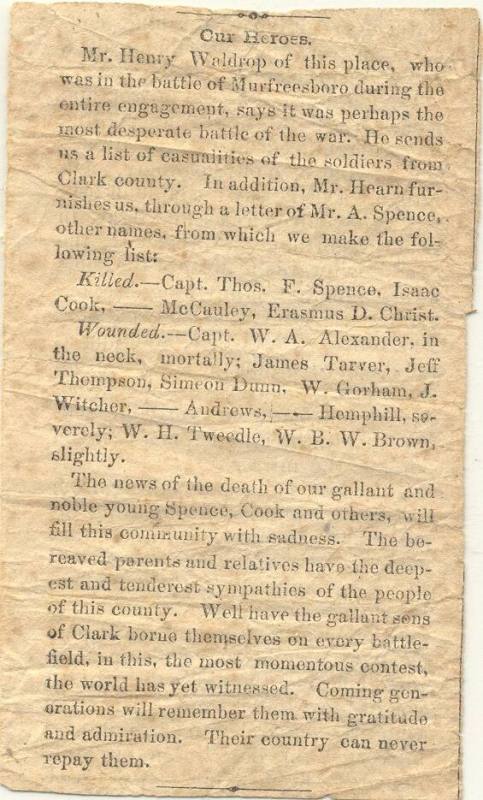 Our Heroes.
Mr. Henry Waldrop of this place, who
was in the battle of Murfreesboro during the
entire engagement, says it was perhaps the
most desperate battle of the war. He sends
us a list of casualities of the soldiers from
Clark county. In addition, Mr. Hearn fur-
nishes us, through a letter of Mr. A. Spence,
other names, from which we make the fol-
lowing list:
Killed.—Capt. Thos. F. Spence, Isaac
Cook, —— McCauley, Erasmus D. Christ.
Wounded.—Capt. W. A. Alexander, in
the neck, mortally; James Tarver, Jeff
Thompson, Simeon Dunn, W. Gorham, J.
Witcher, —— Andrews, —— Hemphill, se-
verely; W. H. Tweedle, W. B. W. Brown,
slightly.
The news of the death of our gallant and
noble young Spence, Cook and others, will
fill this community with sadness. The be-
reaved parents and relatives have the deep-
est and tenderest sympathies of the people
of this county. Well have the gallant sons
of Clark borne themselves on every battle-
field, in this, the most momentous contest,
the world has yet witnessed. Coming gen-
erations will remember them with gratitude
and admiration. Their country can never
repay them.